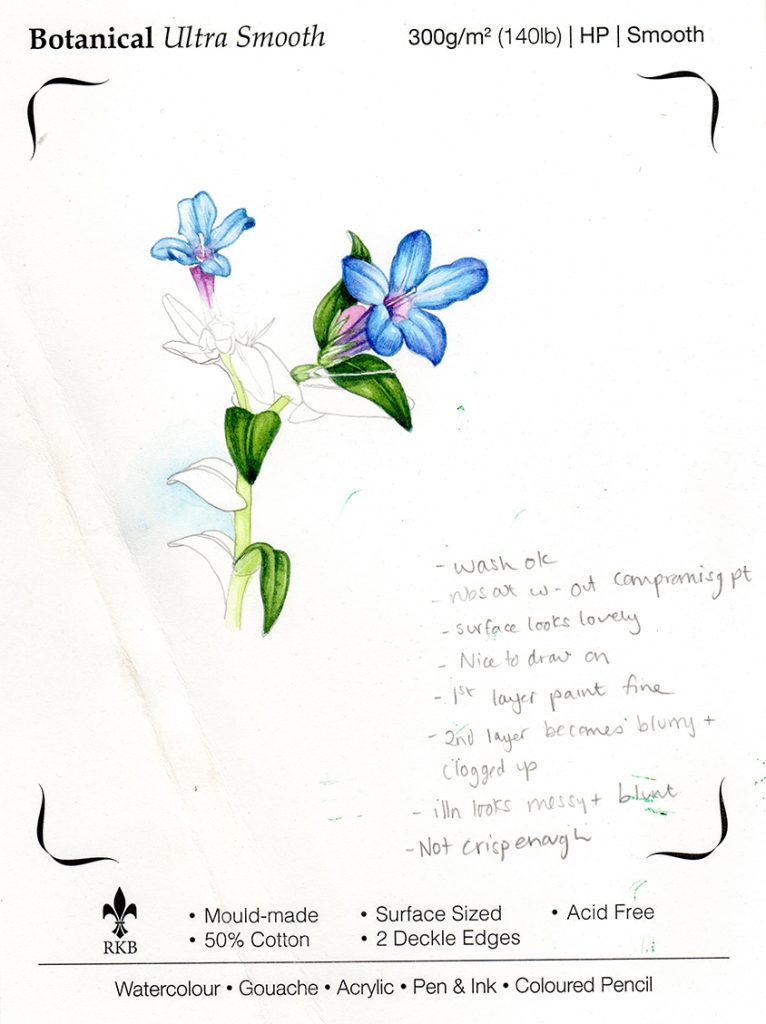 Botanical Ultra Smooth
300g/m² (140lb) | HP | Smooth
- wash ok
- rubs out w-out compromisg pt
- surface looks lovely
- Nice to draw on
- 1st layer paint fine
- 2nd layer becomes blurry +
clogged up
- illn looks messy + blunt
- Not crisp enough
RKB
• Mould-made
• 50% Cotton
• Surface Sized
• 2 Deckle Edges
• Acid Free
Watercolour • Gouache • Acrylic • Pen & Ink • Coloured Pencil